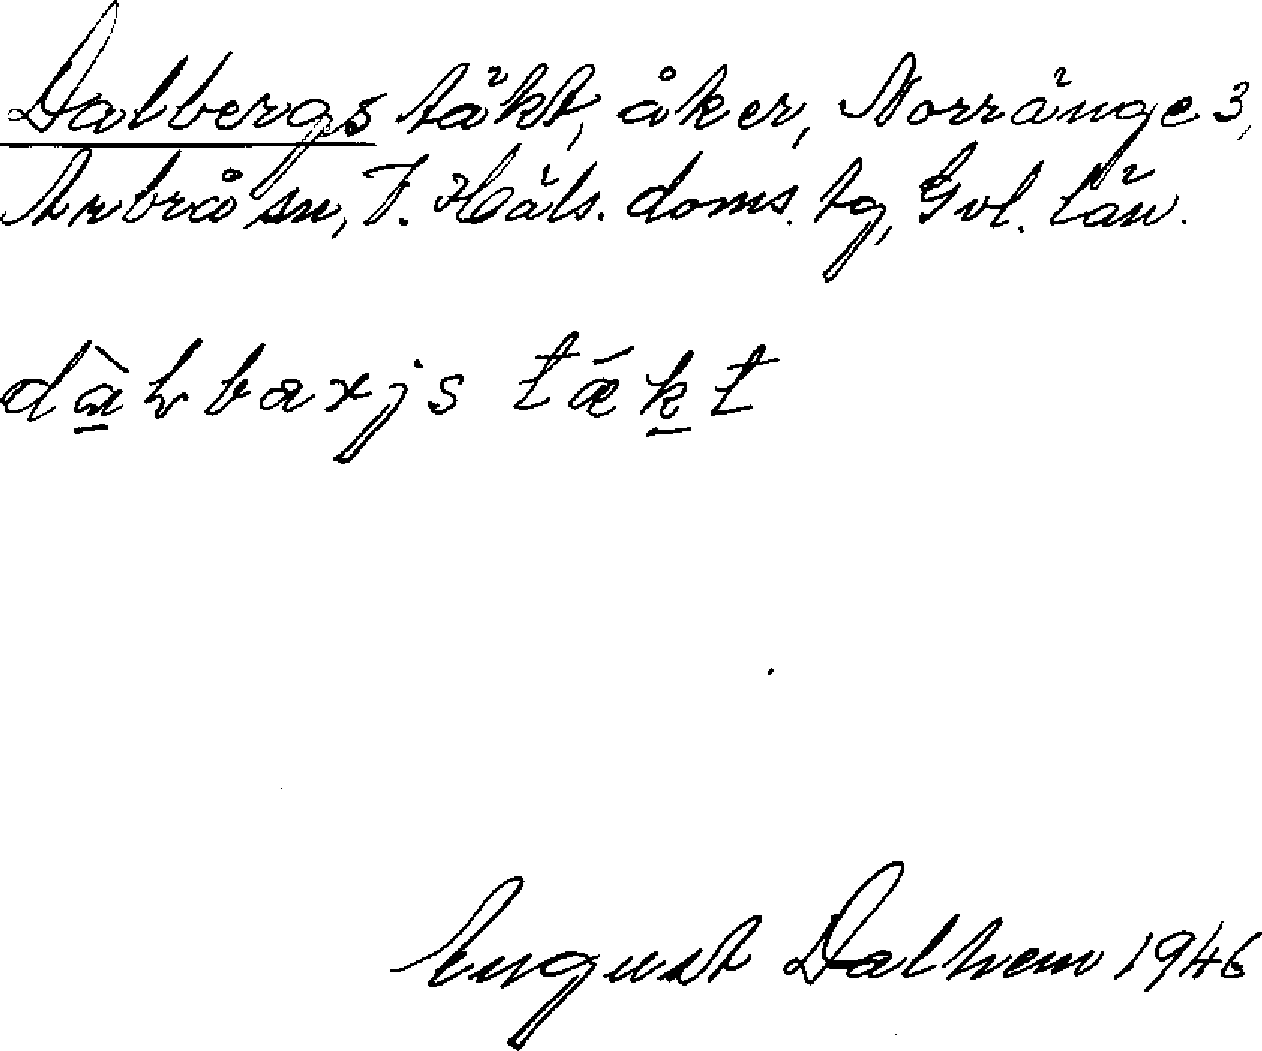 Dalbergs täkt, åker, Norränge 3,
Arbrå sn, V. Häls. doms. tg, Gvl. län.
August Dalhem 1946